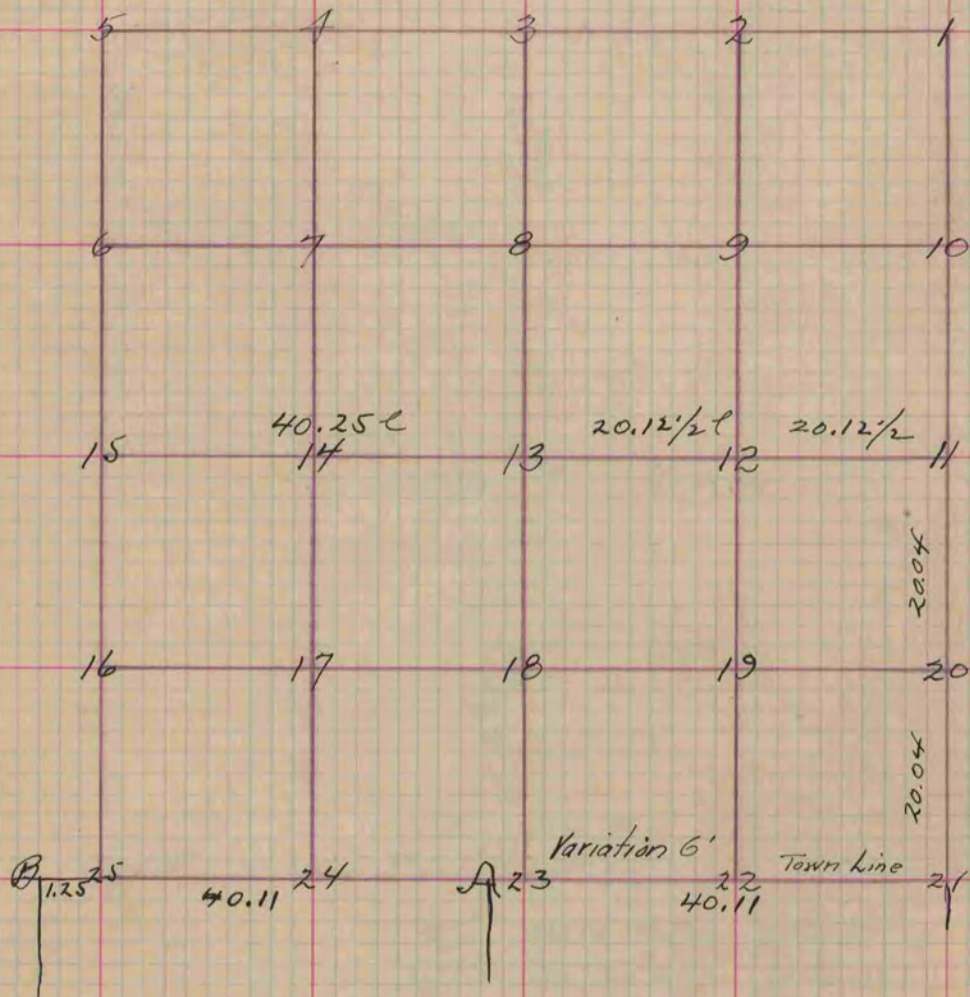 5 4 3 2 1
6 7 8 9 10
40.25 l 20.12 1/2 l 20.12 1/2
15 14 13 12 11
20.04
16 17 18 19 20
20.04
Variation 6' Town Line
B 1.25 25 24 A 23 22 21
40.11 40.11